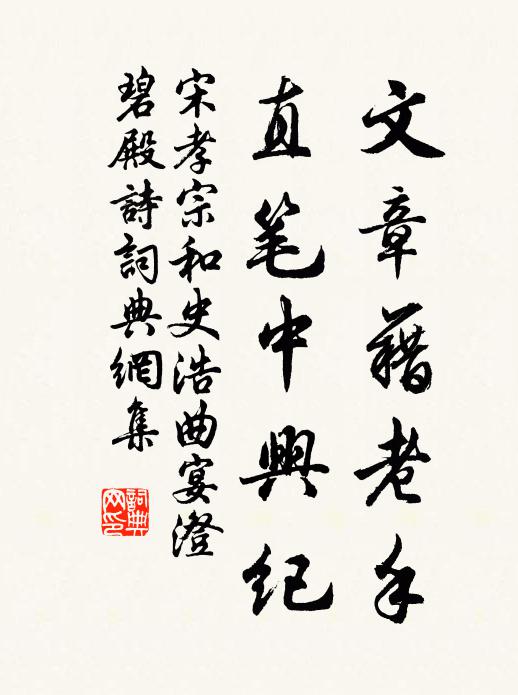 文章藉老手
直笔中興纪
宋孝宗和史浩曲宴澄
碧殿詩詞典網集
詞典
网印